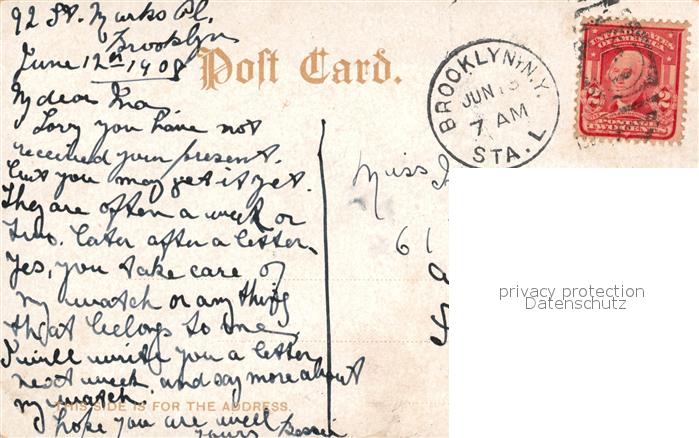 92 St. Marks Pl.
Brooklyn
June 12th 1908
Post Card.
BROOKLYN, N.Y.
JUN 13
7 AM
STA. L.
UNITED STATES
OF AMERICA
2 2
POSTAGE
TWO CENTS
My dear Ina
Sorry you have not
received your present.
but you may get it yet.
They are often a week or
two. later after a letter.
Yes, you take care of
my watch or any thing
that belongs to me
I will write you a letter
next week and say more about
my watch.
THIS SIDE IS FOR THE ADDRESS.
I hope you are well
yours Bessie
Miss
61
privacy protection
Datenschutz